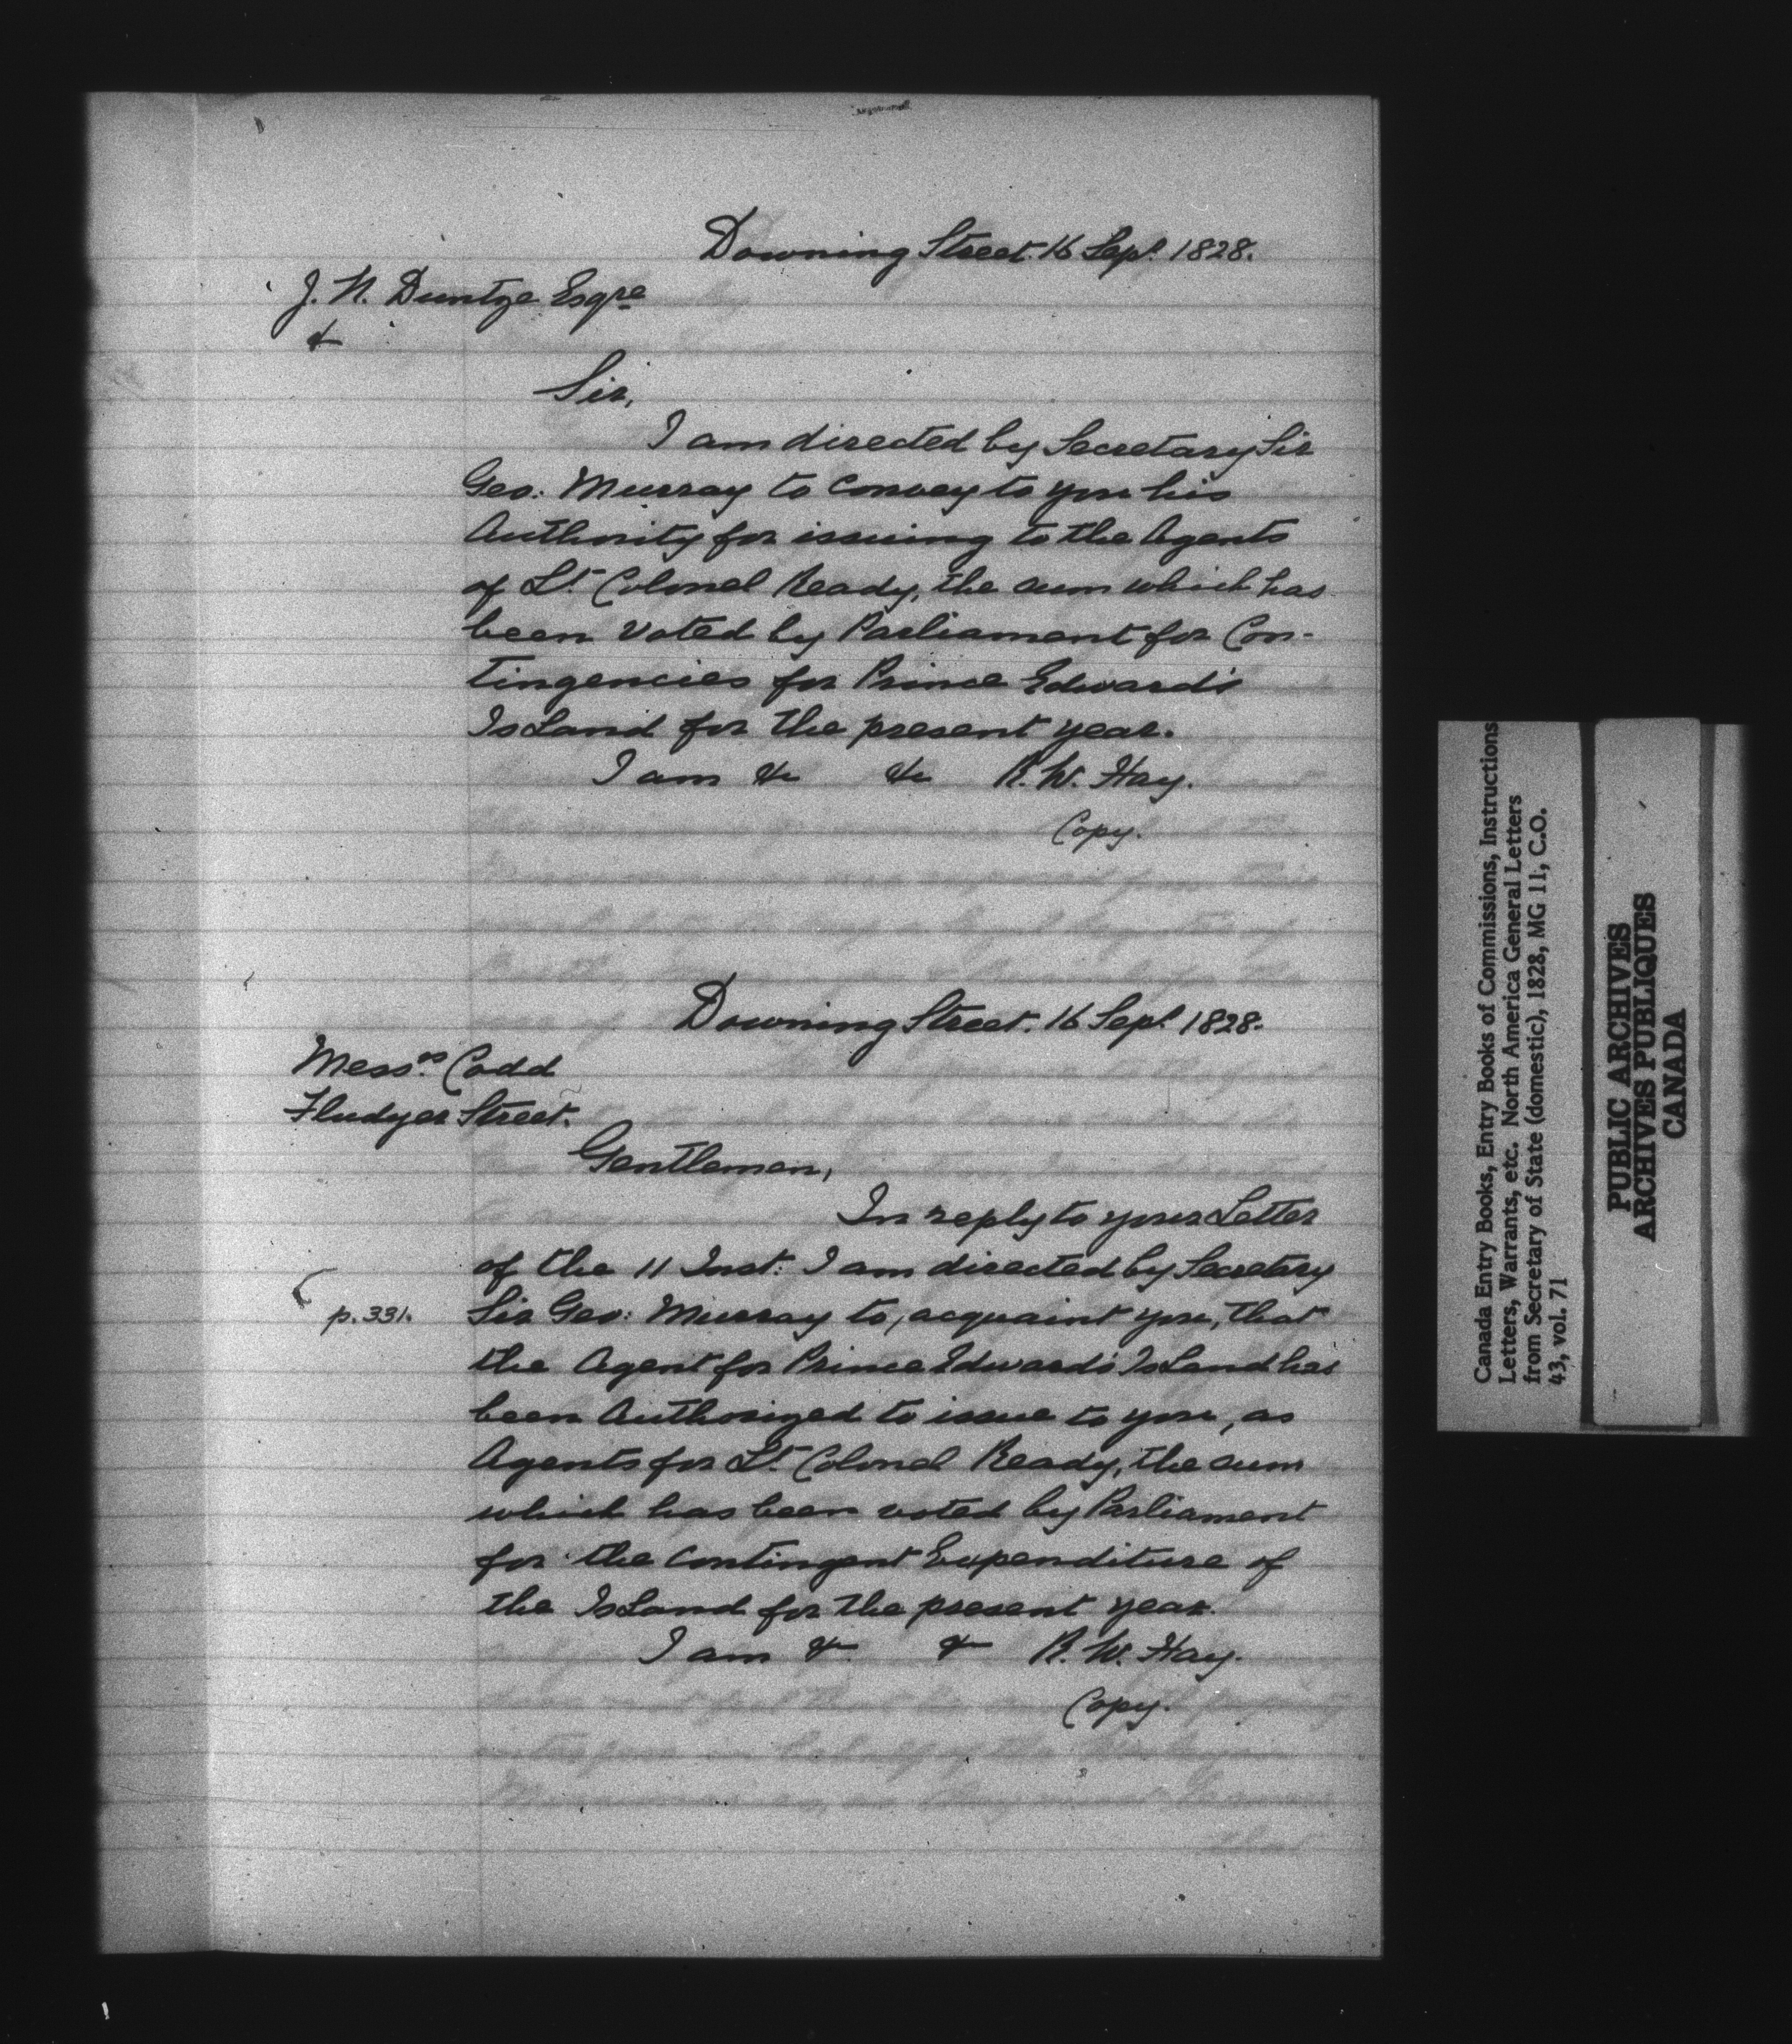 Downing Street. 16 Sept. 1828.
J. N. Duntze Esqre
&
Sir,
I am directed by Secretary Sir
Geo: Murray to convey to you his
Authority for issuing to the Agents
of Lt Colonel Ready, the sum which has
been voted by Parliament for Con-
tingencies for Prince Edward's
Island for the present year.
I am &c &c R. W. Hay.
Copy.
Downing Street. 16 Sept. 1828.
Messrs. Codd
Fludyer Street.
Gentlemen,
In reply to your Letter
of the 11 Inst: I am directed by Secretary
p. 331. Sir Geo: Murray to, acquaint you, that
the Agent for Prince Edward's Island has
been Authorized to issue to you, as
Agents for Lt Colonel Ready, the sum
which has been voted by Parliament
for the Contingent Expenditure of
the Island for the present year.
I am & & R. W. Hay.
Copy.
Canada Entry Books, Entry Books of Commissions, Instructions
Letters, Warrants, etc. North America General Letters
from Secretary of State (domestic), 1828, MG 11, C.O.
43, vol. 71
PUBLIC ARCHIVES
ARCHIVES PUBLIQUES
CANADA